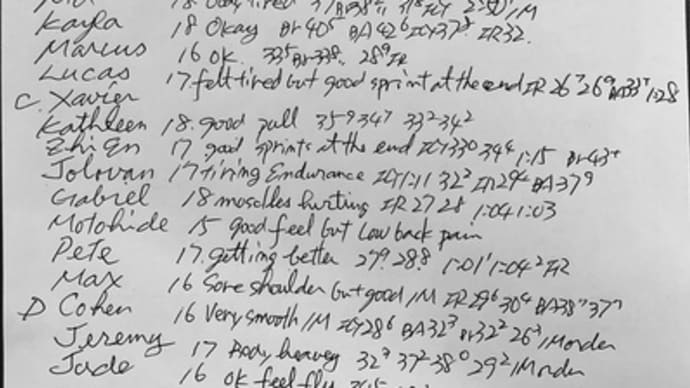 18 body tired 37 BR38
Kayla 18 Okay Br 40⁵ BA 42⁶ ICY37⁸ IR32.
Marcus 16 OK. 33⁵ Br 338. 28⁹ IR
Lucas 17. felt tired but good sprint at the end IR 26⁷ 26⁹ BA33⁷ 1:28
C. Xavier
Kathleen 18. good pull 35⁹ 34⁷ 33² 34²
Zhi En 17 good sprints at the end ICY330 34⁴ 1:15 Br 43⁺
Jolovan 17 tiring Endurance ICY1:11 32² IR 29² BA 37⁹
Gabriel 18 muscles hurting IR 27 28 1:04 1:03
Motohide 15 good feel but Low back pain
Pete 17. getting better 27⁹ 28.8 1:01' 1:04² IR
Max 16 Sore shoulder but good IM IR 29⁶ 30⁴ BA38⁷ 37⁷
D Cohen 16 Very smooth IM ICY28⁶ BA32³ Br 32² 26³ IMorder
Jeremy 17 Body heavey 32³ 37² 38⁰ 29² IMorder
Jade 16 OK feel fly